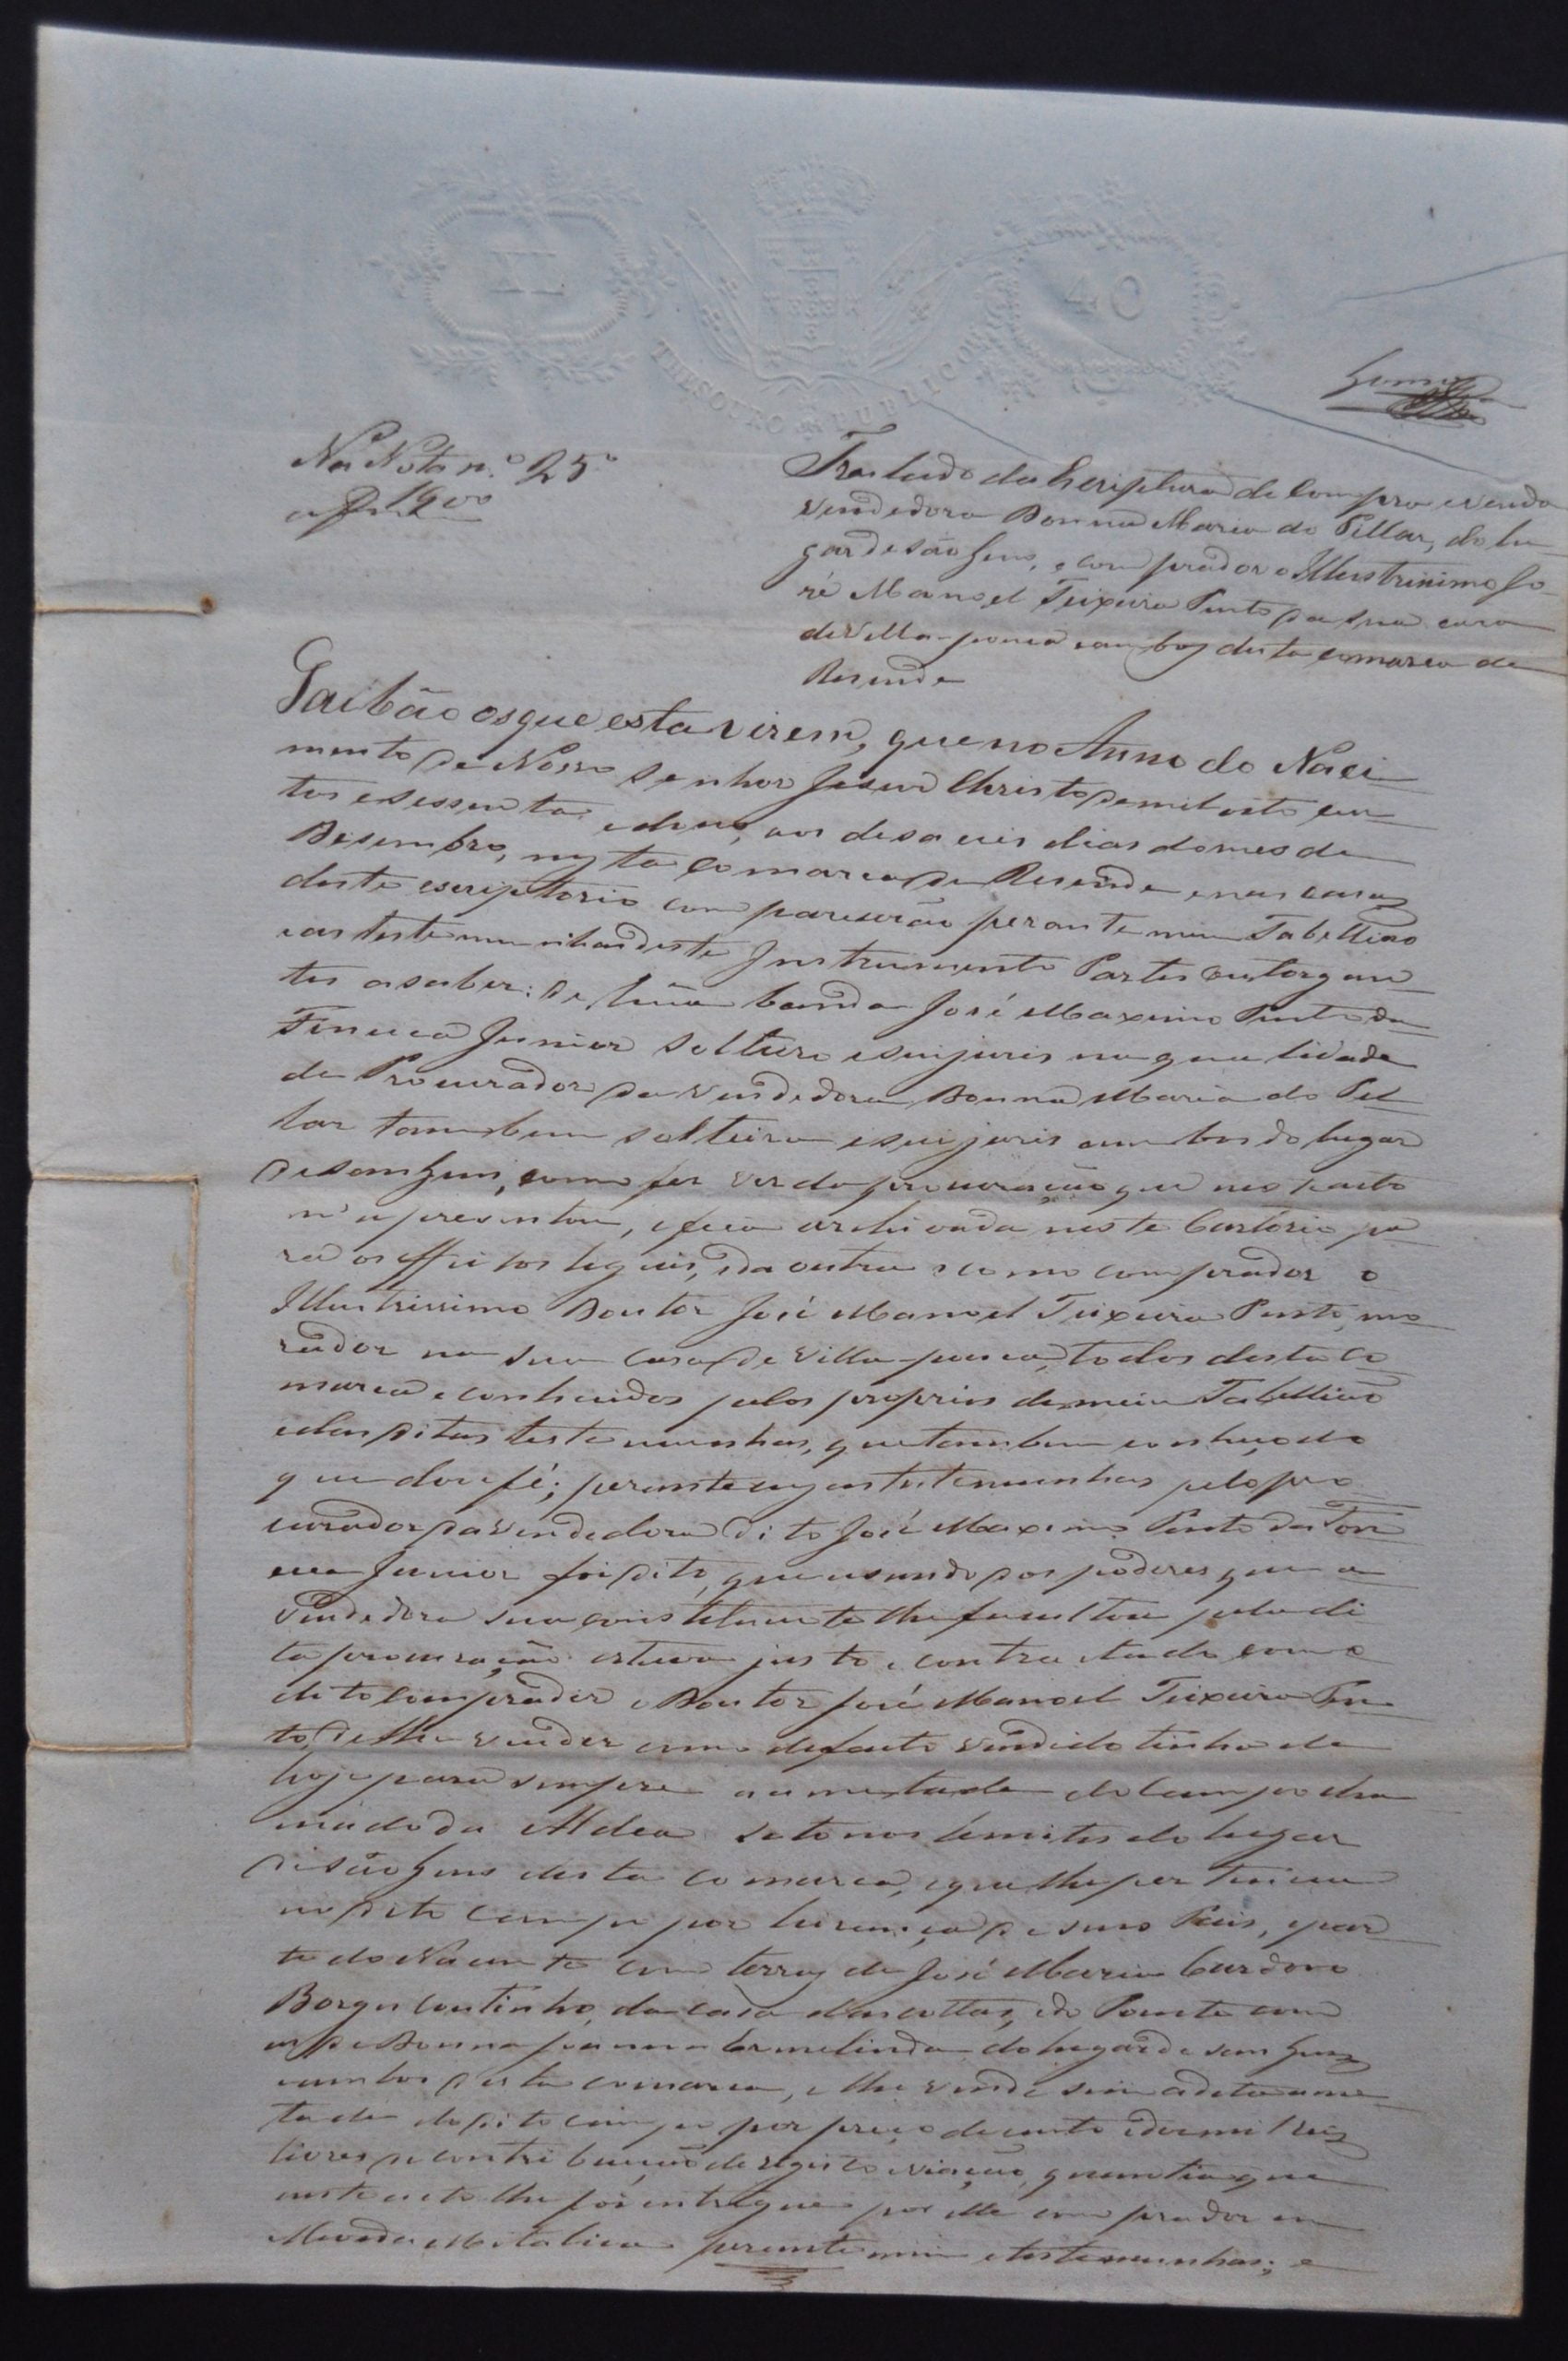 40
THESOURO PUBLICO
Na Nota n.º 25º
Traslado da Escriptura de Compra e venda
vendedora Donna Maria do Pillar, do lu-
gar de são Gens, e comprador o Illustrissimo Jo-
zé Manoel Teixeira Pinto da sua casa
de Villa-pouca ambos desta comarca de
Resende
Saibão os que esta virem, que no Anno do Naci-
mento de Nosso Senhor Jesus Christo de mil oito cen-
tos e sessenta e dous, aos desaceis dias do mes de
Desembro, nesta Comarca de Resende e nas casas
deste escriptorio comparecerão perante mim Tabellião
e as testemunhas deste Instrumento Partes outorgan-
tes a saber: de huma banda José Maximo Pinto da
Fonceca Junior solteiro e suijuris na qualidade
de Procurador da vendedora Donna Maria do Pil-
lar tambem solteira e suijuris ambos do lugar
de sam Gens, como fes ver da procuração que neste acto
m'apresentou, e fica archivada neste Cartorio pa-
ra os effeitos legais, e da outra como comprador o
Illustrissimo Doutor José Manoel Teixeira Pinto, mo-
rador na sua Casa de Villa-pouca, todos desta Co-
marca e conhecidos pelos proprios de mim Tabellião
e das ditas testemunhas, que tambem conheço do
que dou fé; perante cujas testemunhas pelo pro-
curador da vendedora dito José Maximo Pinto da Fon-
ceca Junior foi dito, que usando dos poderes que a
Vendedora sua constetuente lhe facultou pela di-
ta procuração estava justo e contractado com o
dito Comprador o Doutor José Manoel Teixeira Pin-
to, de lhe vender como defacto vendido tinha de
hoje para sempre a ametade do Campo cha-
mado da Aldea sito nos lemites do lugar
de são Gens desta comarca, que lhe pertence
no dito Campo por herança de seus Pais, e par-
te do Nacente com terras de José Maria Cardoso
Borges Coutinho, da casa das cottas, e do Poente com
as de Donna Joanna Ermelinda do lugar de sam Gens
ambos desta comarca, e lhe vende sim a dita ame-
tade do dito Campo por preço de cento e dois mil reis
livres de contribuição de registo e viação, quantia que
neste acto lhe foi entregue por elle comprador em
Moeda Metalica perante mim e testemunhas; e